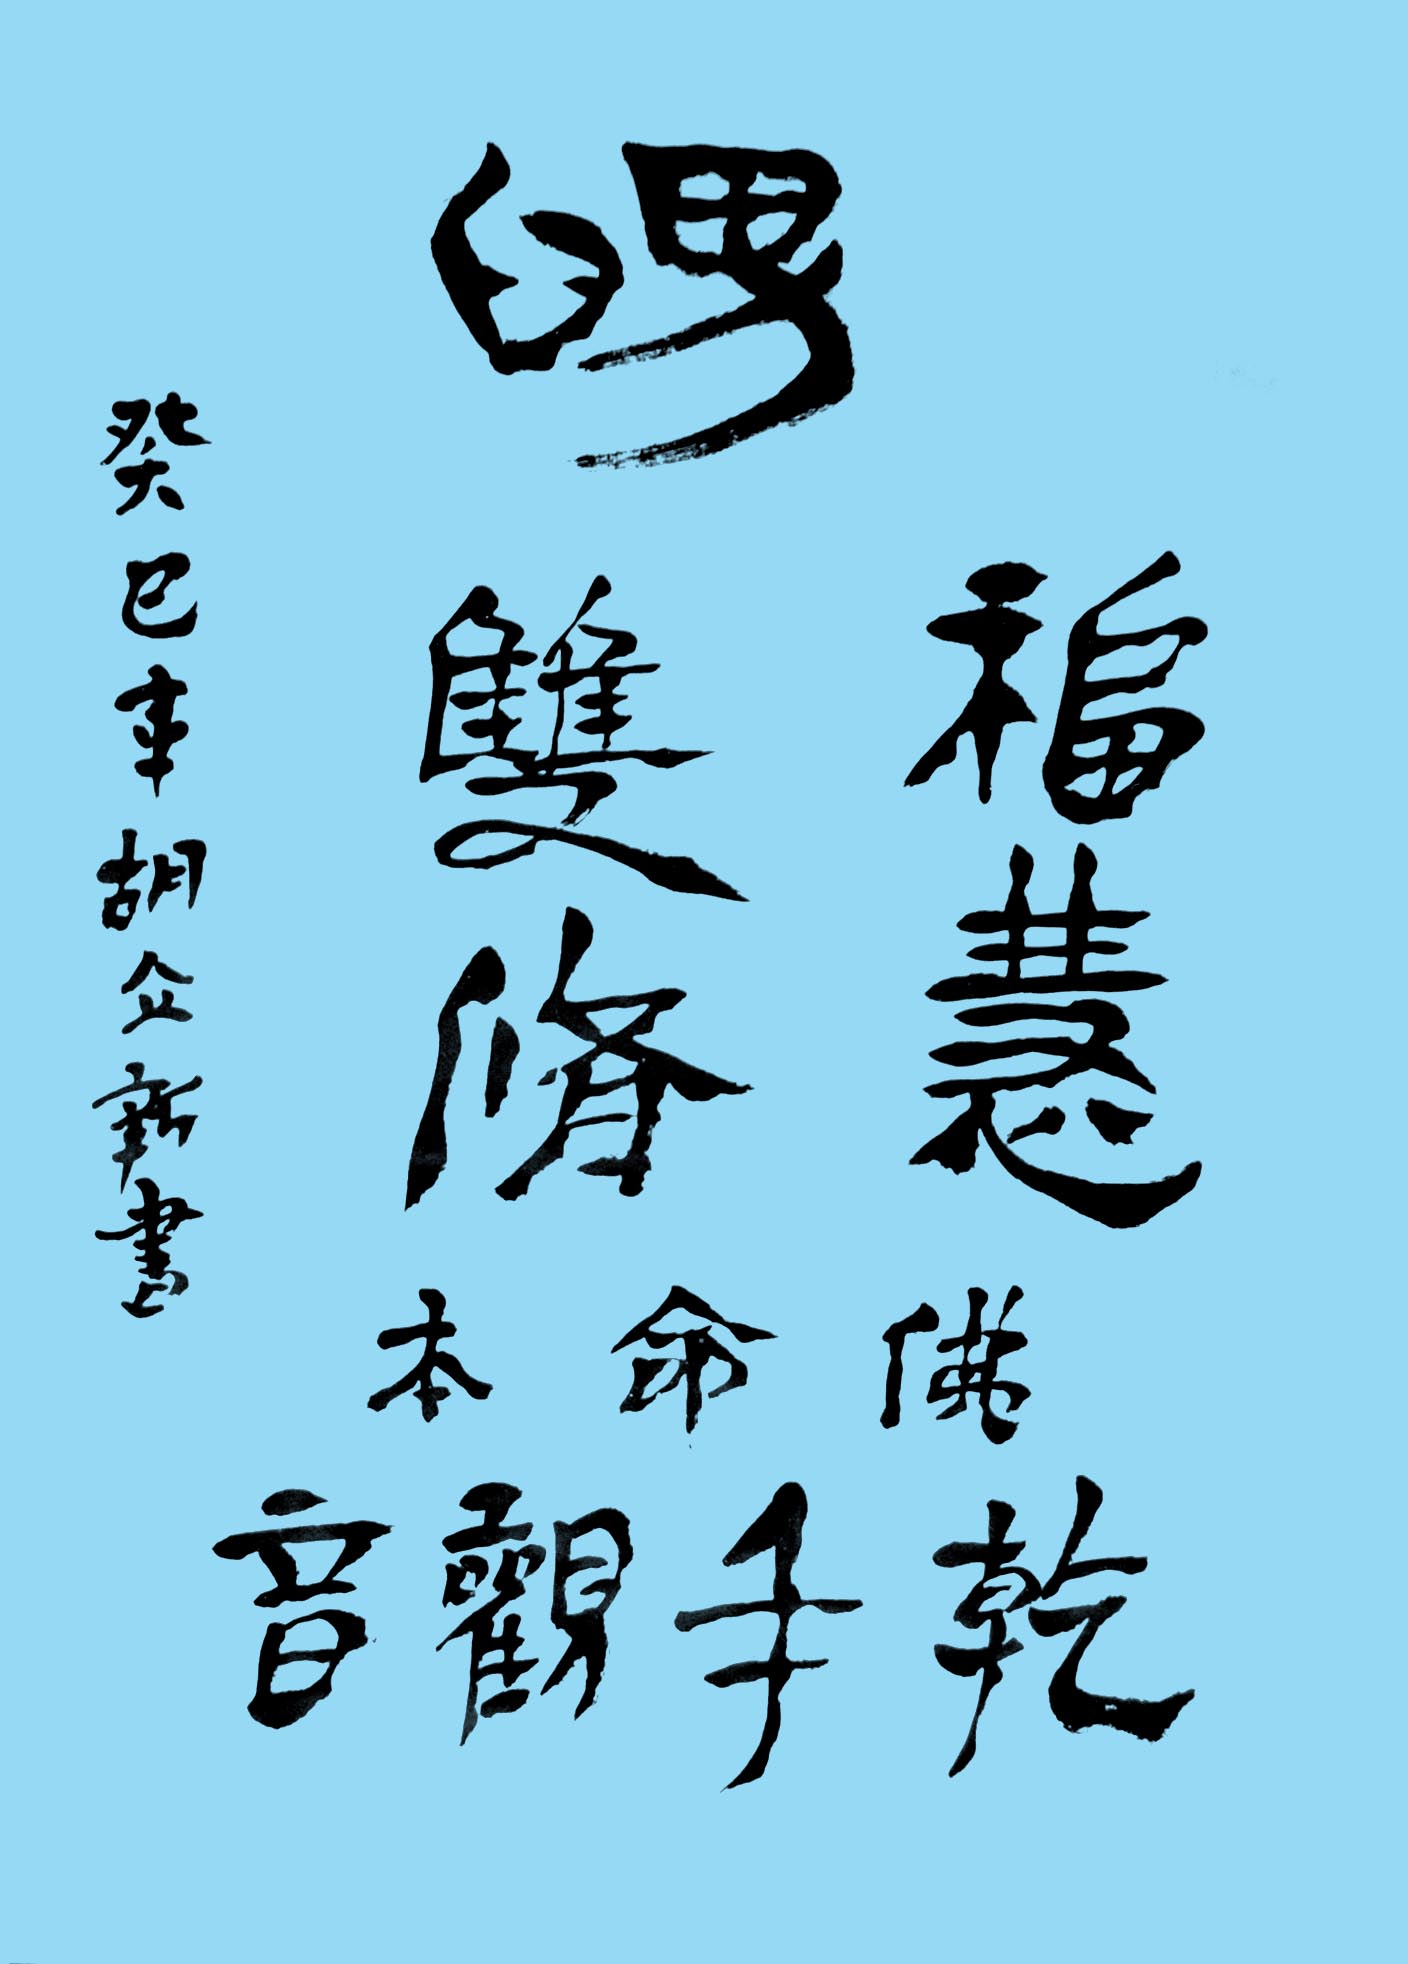 福慧
雙脩
本命佛
乾手觀音
癸巳年胡企新書